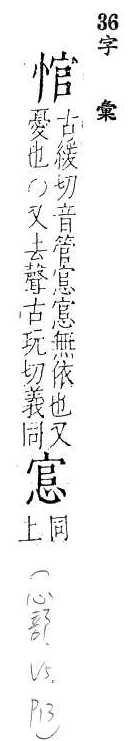 36
字 彙
悺
古緩切音管悹悹無依也又
憂也○又去聲古玩切義同
悹
同
上
(心部, V5, P13)